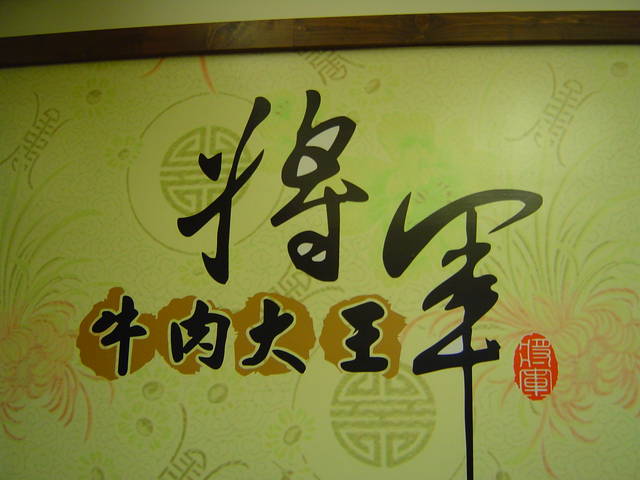 將軍
牛肉大王
將軍